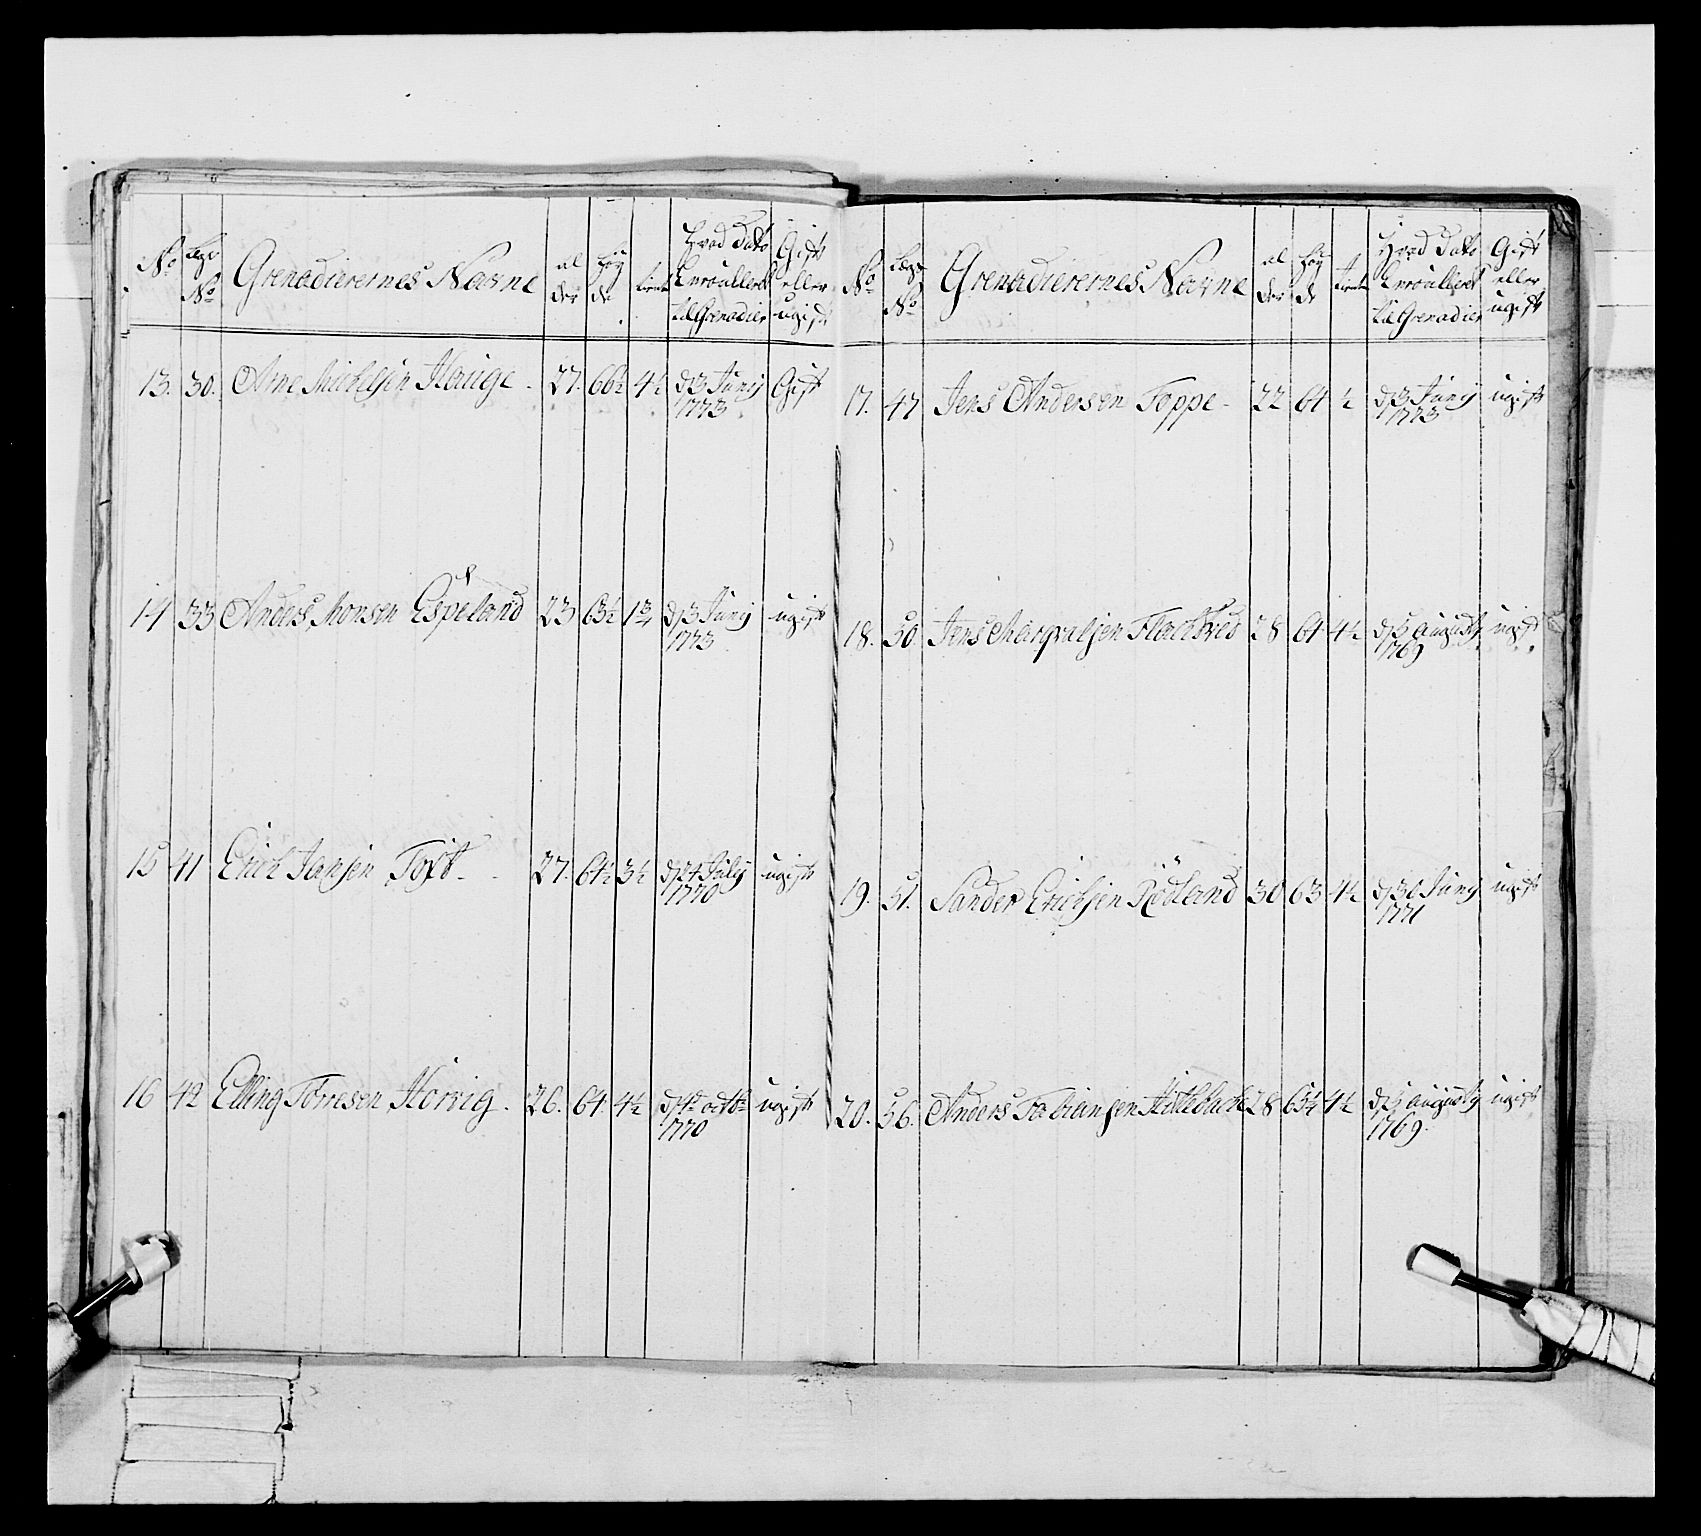 No
Lægs No
Grenadierernes Navne
al der
høy de
tienst
Hvad Dato Enroulleret til Grenadier
Gift eller ugift
13. 30. Arne Michelsen Hauge. 27. 66½ 4½ d 3 Junij 1773 Gift
14 33 Anders Monsen Espeland 23 63½ 1¾ d 3 Junij 1773 ugift
15 41 Erich Jansen Toft. 27. 64½ 3½ d 24 Julij 1770 ugift
16 42 Elling Torresen Horvig. 26. 64. 4½ 1770 ugift
No
Lægs No
Grenadierernes Navne
al der
høy de
tienst
Hvad Dato Enroullert til Grenadier
Gift eller ugift
17. 47 Jens Andersen Toppe. 22 64 ½ d 3 Junij 1773 ugift
18. 50. Jens Marqvalsen 28 64 4½ d 5 Augusti 1769 ugift
19. 51. Sander Erichsen Rödland 30 63 4½ d 30 Junij 1771 ugift
20. 56. Anders Fabiansen 28 65¼ 4½ d 5 Augustij 1769. ugift